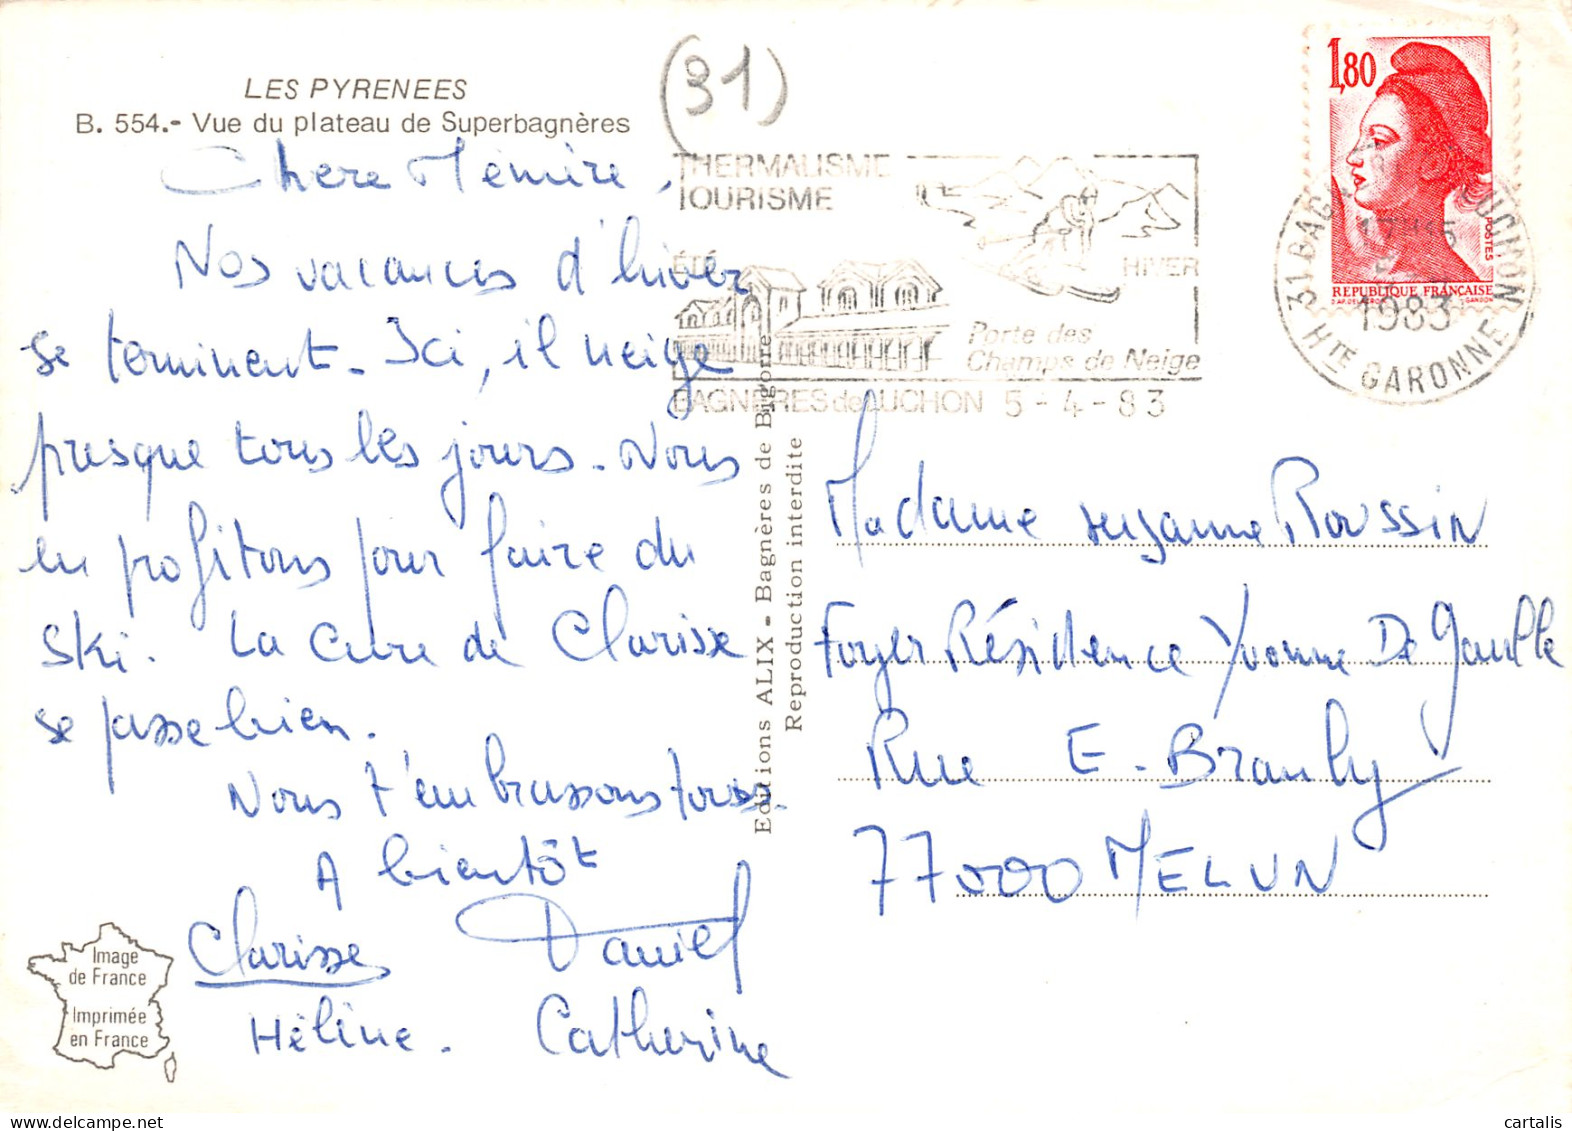 LES PYRENEES
B. 554.- Vue du plateau de Superbagnères
(31)
Chère Mémère,
Nos vacances d'hiver
se terminent. Ici, il neige
presque tous les jours. Nous
en profitons pour faire du
ski. La cure de Clarisse
se passe bien.
Nous t'embrassons tous.
A bientôt
Clarisse Daniel
Hélène. Catherine
Image
de France
Imprimée
en France
Editions ALIX - Bagnères de Bigorre
Reproduction interdite
THERMALISME
TOURISME
ÉTÉ
HIVER
Porte des
Champs de Neige
BAGNERES de LUCHON 5-4-83
1,80
POSTES
REPUBLIQUE FRANÇAISE
31 BAGNÈRES LUCHON
1983
HTE GARONNE
Madame Suzanne Roussin
Foyer Résidence Yvonne De Gaulle
Rue E. Branly
77000 MELUN
cartalis
www.delcampe.net